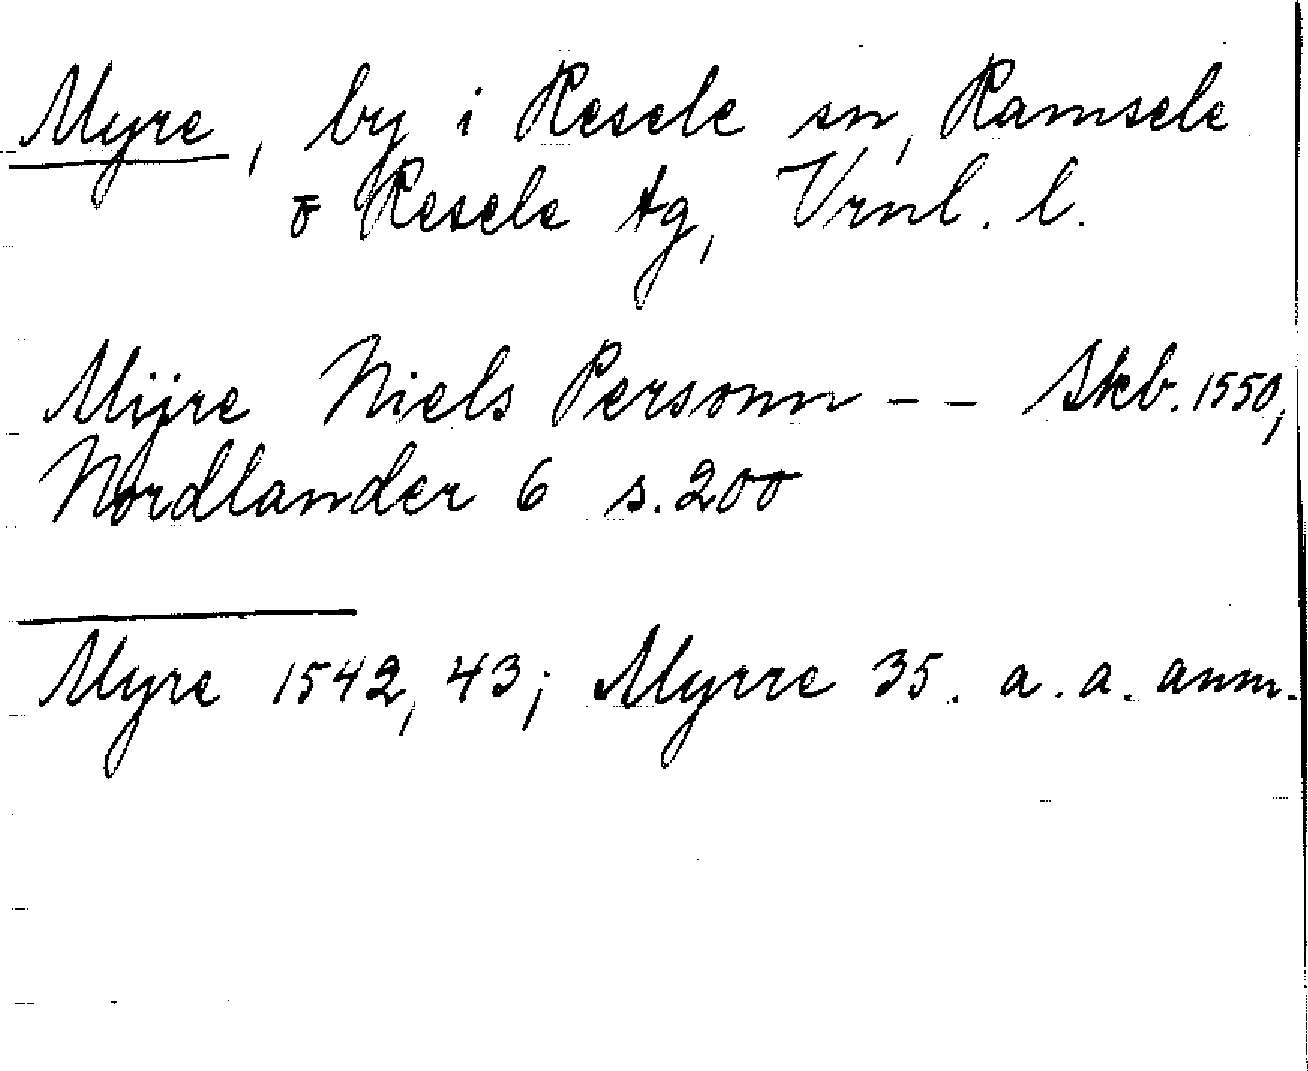 Myre, by i Resele sn, Ramsele
o Resele tg, Vrnl. l.
Mÿre Niels Personn -- Skb. 1550,
Nordlander 6 s. 200
Myre 1542, 43; Myrre 35. a. a. anm.